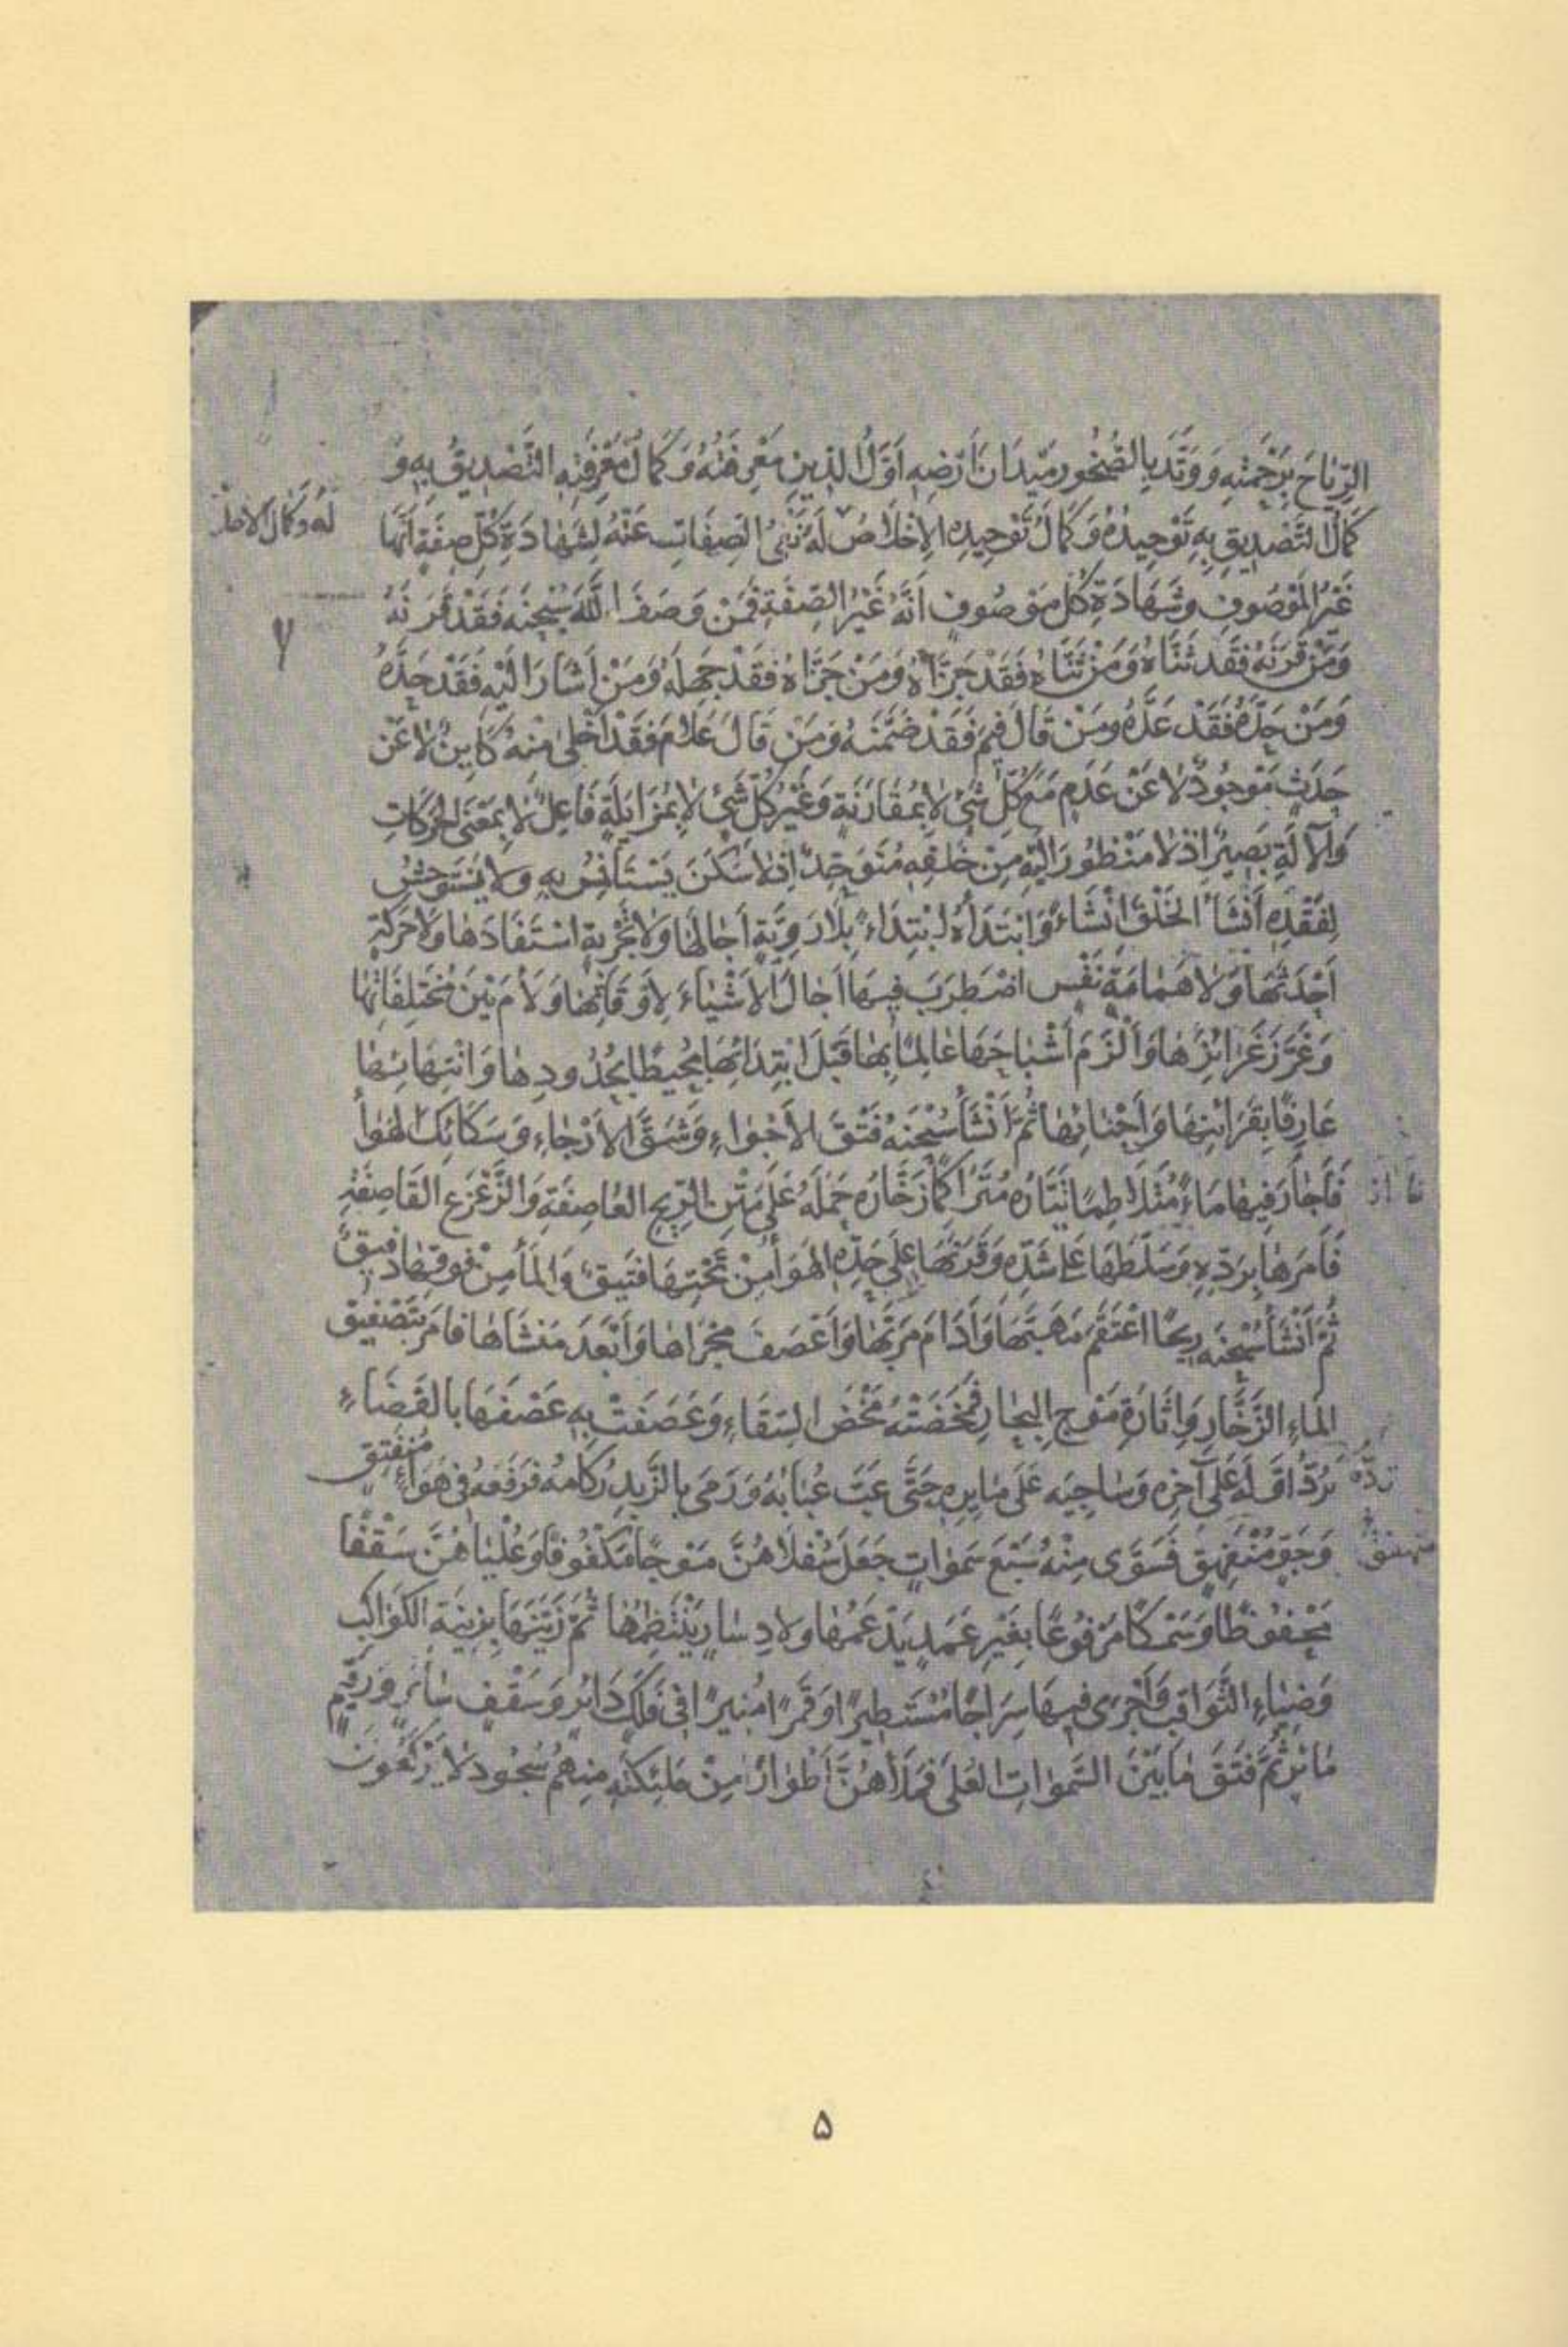 الرِّيَاحَ بِرَحْمَتِهِ وَوَتَّدَ بِالصُّخُورِ مَيَدَانَ أَرْضِهِ أَوَّلُ الدِّينِ مَعْرِفَتُهُ وَكَمَالُ مَعْرِفَتِهِ التَّصْدِيقُ بِهِ وَ
كَمَالُ التَّصْدِيقِ بِهِ تَوْحِيدُهُ وَكَمَالُ تَوْحِيدِهِ الْإِخْلَاصُ لَهُ نَفْيُ الصِّفَاتِ عَنْهُ لِشَهَادَةِ كُلِّ صِفَةٍ أَنَّهَا
له وكمال الاخلا
غَيْرُ الْمَوْصُوفِ وَشَهَادَةِ كُلِّ مَوْصُوفٍ أَنَّهُ غَيْرُ الصِّفَةِ فَمَنْ وَصَفَ اللَّهَ سُبْحٰنَهُ فَقَدْ قَرَنَهُ
وَمَنْ قَرَنَهُ فَقَدْ ثَنَّاهُ وَمَنْ ثَنَّاهُ فَقَدْ جَزَّأَهُ وَمَنْ جَزَّأَهُ فَقَدْ جَهِلَهُ وَمَنْ أَشَارَ إِلَيْهِ فَقَدْ حَدَّهُ
وَمَنْ حَدَّهُ فَقَدْ عَدَّهُ وَمَنْ قَالَ فِيمَ فَقَدْ ضَمَّنَهُ وَمَنْ قَالَ عَلَامَ فَقَدْ أَخْلَى مِنْهُ كَايِنٌ لَا عَنْ
حَدَثٍ مَوْجُودٌ لَا عَنْ عَدَمٍ مَعَ كُلِّ شَيْءٍ لَا بِمُقَارَنَةٍ وَغَيْرُ كُلِّ شَيْءٍ لَا بِمُزَايَلَةٍ فَاعِلٌ لَا بِمَعْنَى الْحَرَكَاتِ
وَالْآلَةِ بَصِيرٌ إِذْ لَا مَنْظُورَ إِلَيْهِ مِنْ خَلْقِهِ مُتَوَحِّدٌ إِذْ لَا سَكَنَ يَسْتَأْنِسُ بِهِ وَلَا يَسْتَوْحِشُ
لِفَقْدِهِ أَنْشَأَ الْخَلْقَ إِنْشَاءً وَابْتَدَأَهُ ابْتِدَاءً بِلَا رَوِيَّةٍ أَجَالَهَا وَلَا تَجْرِبَةٍ اسْتَفَادَهَا وَلَا حَرَكَةٍ
أَحْدَثَهَا وَلَا هَمَامَةِ نَفْسٍ اضْطَرَبَ فِيهَا أَحَالَ الْأَشْيَاءَ لِأَوْقَاتِهَا وَلَأَمَ بَيْنَ مُخْتَلِفَاتِهَا
وَغَرَّزَ غَرَائِزَهَا وَأَلْزَمَ أَشْبَاحَهَا عَالِمًا بِهَا قَبْلَ ابْتِدَائِهَا مُحِيطًا بِحُدُودِهَا وَانْتِهَائِهَا
عَارِفًا بِقَرَائِنِهَا وَأَحْنَائِهَا ثُمَّ أَنْشَأَ سُبْحٰنَهُ فَتْقَ الْأَجْوَاءِ وَشَقَّ الْأَرْجَاءِ وَسَكَائِكَ الْهَوَاءِ
فَأَجَارَ فِيهَا مَاءً مُتَلَاطِمًا تَيَّارُهُ مُتَرَاكِمًا زَخَّارُهُ حَمَلَهُ عَلَى مَتْنِ الرِّيحِ الْعَاصِفَةِ وَالزَّعْزَعِ الْقَاصِفَةِ
فَأَمَرَهَا بِرَدِّهِ وَسَلَّطَهَا عَلَى شَدِّهِ وَقَرَنَهَا عَلَى حَدِّهِ الْهَوَاءُ مِنْ تَحْتِهَا فَتِيقٌ وَالْمَاءُ مِنْ فَوْقِهَا دَفِيقٌ
ثُمَّ أَنْشَأَ سُبْحٰنَهُ رِيحًا اعْتَقَمَ مَهَبَّهَا وَأَدَامَ مُرَبَّهَا وَأَعْصَفَ مَجْرَاهَا وَأَبْعَدَ مَنْشَاهَا فَأَمَرَ بِتَصْفِيقِ
الْمَاءِ الزَّخَّارِ وَإِثَارَةِ مَوْجِ الْبِحَارِ فَمَخَضَتْهُ مَخْضَ السِّقَاءِ وَعَصَفَتْ بِهِ عَصْفَهَا بِالْفَضَاءِ
تَرُدُّ أَوَّلَهُ عَلَى آخِرِهِ وَسَاجِيَهُ عَلَى مَايِرِهِ حَتَّى عَبَّ عُبَابُهُ وَرَمَى بِالزَّبَدِ رُكَامُهُ فَرَفَعَهُ فِي هَوَاءٍ مُنْفَتِقٍ
وَجَوٍّ مُنْفَهِقٍ فَسَوَّى مِنْهُ سَبْعَ سَمٰوَاتٍ جَعَلَ سُفْلَاهُنَّ مَوْجًا مَكْفُوفًا وَعُلْيَاهُنَّ سَقْفًا
مَحْفُوظًا وَسَمْكًا مَرْفُوعًا بِغَيْرِ عَمَدٍ يَدْعَمُهَا وَلَا دِسَارٍ يَنْتَظِمُهَا ثُمَّ زَيَّنَهَا بِزِينَةِ الْكَوَاكِبِ
وَضِيَاءِ الثَّوَاقِبِ وَأَجْرَى فِيهَا سِرَاجًا مُسْتَطِيرًا وَقَمَرًا مُنِيرًا فِي فَلَكٍ دَائِرٍ وَسَقْفٍ سَائِرٍ وَرَقِيمٍ
مَائِرٍ ثُمَّ فَتَقَ مَا بَيْنَ السَّمٰوَاتِ الْعُلَى فَمَلَأَهُنَّ أَطْوَارًا مِنْ مَلٰئِكَتِهِ مِنْهُمْ سُجُودٌ لَا يَرْكَعُونَ
۵